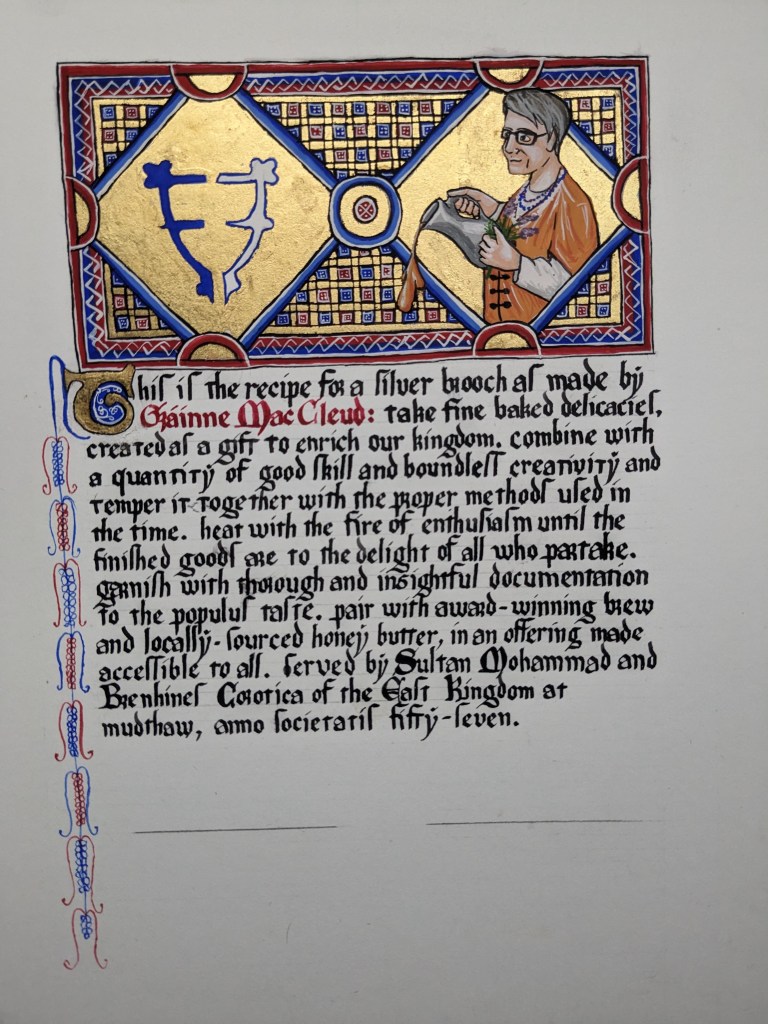 This is the recipe for a silver brooch as made by
Gráinne Mac Cleud: take fine baked delicacies,
created as a gift to enrich our kingdom. combine with
a quantity of good skill and boundless creativity and
temper it together with the proper methods used in
the time. heat with the fire of enthusiasm until the
finished goods are to the delight of all who partake.
garnish with thorough and insightful documentation
to the populus taste. pair with award-winning brew
and locally-sourced honey butter, in an offering made
accessible to all. served by Sultan Mohammad and
Brenhines Corotica of the East Kingdom at
mudthaw, anno societatis fifty-seven.